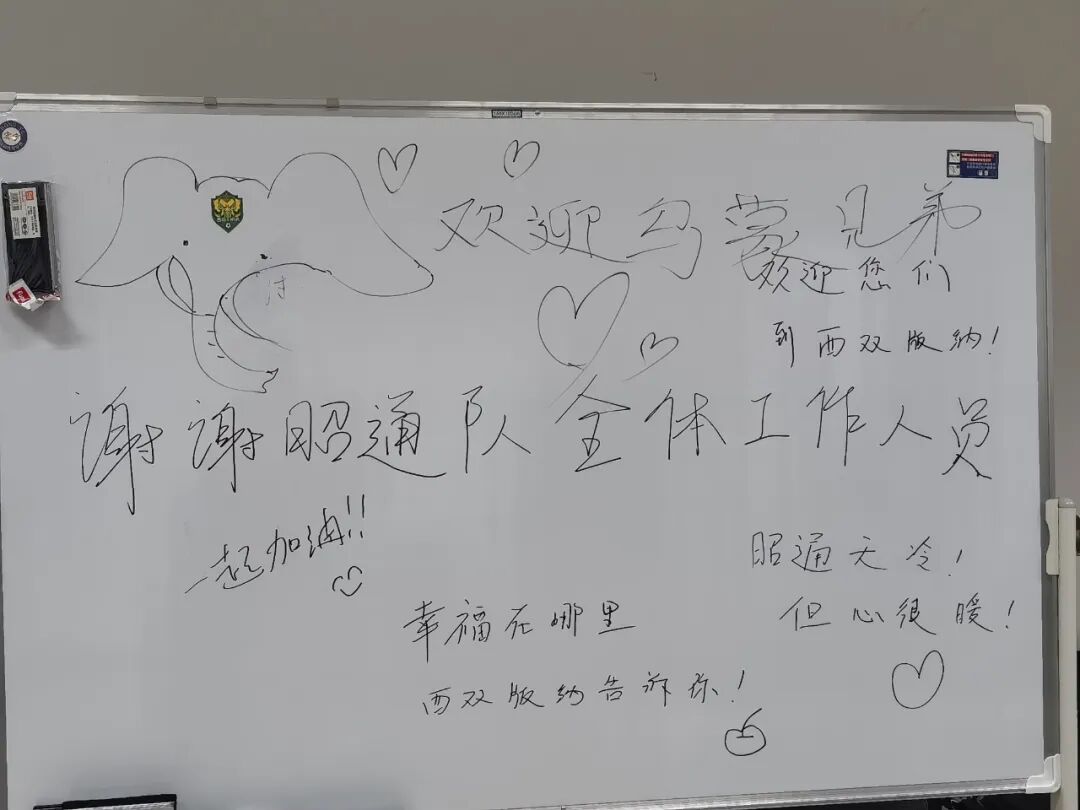 欢迎乌蒙兄弟
欢迎您们
到西双版纳!
谢谢昭通队全体工作人员
一起加油!!
昭通天冷!
但心很暖!
幸福在哪里
西双版纳告诉你!